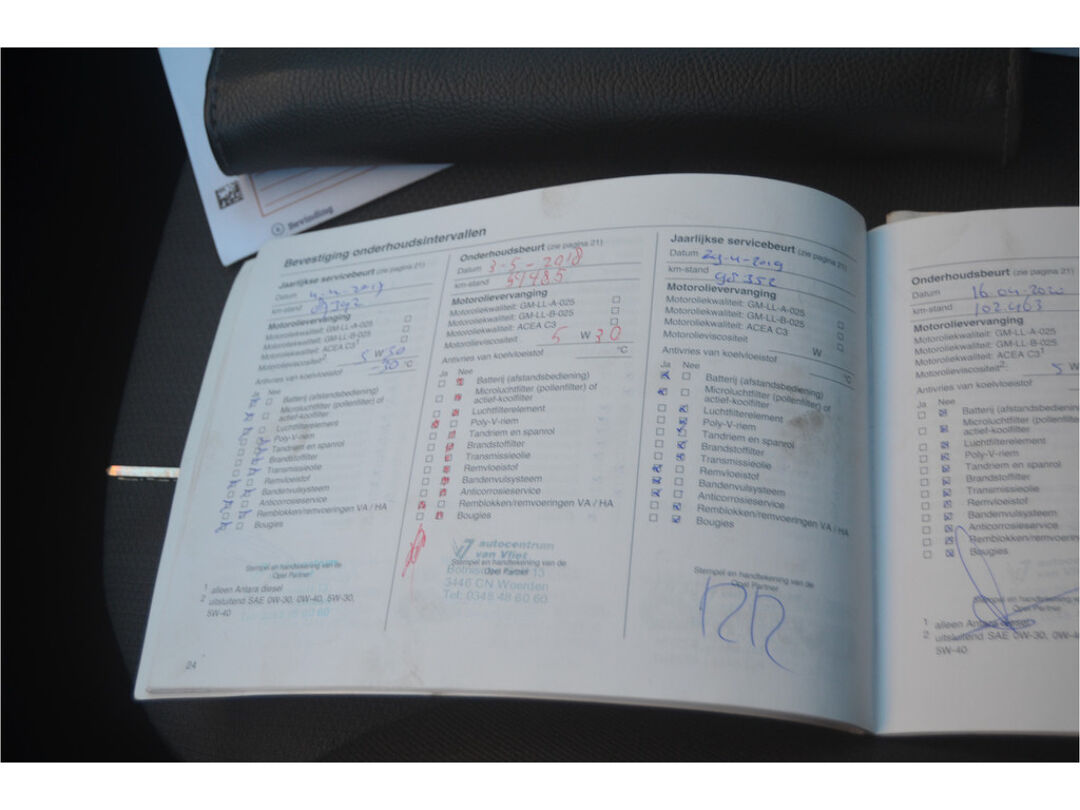 Bevinding
Bevestiging onderhoudsintervallen
Jaarlijkse servicebeurt (zie pagina 21)
Datum
km-stand
Motorolievervanging
Motoroliekwaliteit: GM-LL-A-025
Motoroliekwaliteit: GM-LL-B-025
Motoroliekwaliteit: ACEA C3¹
Motorolieviscositeit²: 5 W 30
Antivries van koelvloeistof -30 °C
Ja Nee
Batterij (afstandsbediening)
Microluchtfilter (pollenfilter) of
actief-koolfilter
Luchtfilterelement
Poly-V-riem
Tandriem en spanrol
Brandstoffilter
Transmissieolie
Remvloeistof
Bandenvulsysteem
Anticorrosieservice
Remblokken/remvoeringen VA / HA
Bougies
Stempel en handtekening van de
Opel Partner
1 alleen Antara diesel
2 uitsluitend SAE 0W-30, 0W-40, 5W-30,
5W-40
24
Onderhoudsbeurt (zie pagina 21)
Datum 3-5-2018
km-stand
Motorolievervanging
Motoroliekwaliteit: GM-LL-A-025
Motoroliekwaliteit: GM-LL-B-025
Motoroliekwaliteit: ACEA C3
Motorolieviscositeit 5 W 30
Antivries van koelvloeistof °C
Ja Nee
Batterij (afstandsbediening)
Microluchtfilter (pollenfilter) of
actief-koolfilter
Luchtfilterelement
Poly-V-riem
Tandriem en spanrol
Brandstoffilter
Transmissieolie
Remvloeistof
Bandenvulsysteem
Anticorrosieservice
Remblokken/remvoeringen VA / HA
Bougies
autocentrum
van Vliet
Stempel en handtekening van de
Opel Partner
13
3446 CN Woerden
Tel: 0348 48 60 60
Jaarlijkse servicebeurt (zie pagina 21)
Datum
km-stand 98 352
Motorolievervanging
Motoroliekwaliteit: GM-LL-A-025
Motoroliekwaliteit: GM-LL-B-025
Motoroliekwaliteit: ACEA C3
Motorolieviscositeit W
Antivries van koelvloeistof °C
Ja Nee
Batterij (afstandsbediening)
Microluchtfilter (pollenfilter) of
actief-koolfilter
Luchtfilterelement
Poly-V-riem
Tandriem en spanrol
Brandstoffilter
Transmissieolie
Remvloeistof
Bandenvulsysteem
Anticorrosieservice
Remblokken/remvoeringen VA / HA
Bougies
Stempel en handtekening van de
Opel Partner
Onderhoudsbeurt (zie pagina 21)
Datum 16-04-2020
km-stand 102.463
Motorolievervanging
Motoroliekwaliteit: GM-LL-A-025
Motoroliekwaliteit: GM-LL-B-025
Motoroliekwaliteit: ACEA C3¹
Motorolieviscositeit²: 5 W
Antivries van koelvloeistof
Ja Nee
Batterij (afstandsbediening
Microluchtfilter (pollenfilte
actief-koolfilter
Luchtfilterelement
Poly-V-riem
Tandriem en spanrol
Brandstoffilter
Transmissieolie
Remvloeistof
Bandenvulsysteem
Anticorrosieservice
Remblokken/remvoeringen
Bougies
Stempel en handtekening van
Opel Partner
1 alleen Antara diesel
2 uitsluitend SAE 0W-30, 0W-4
5W-40